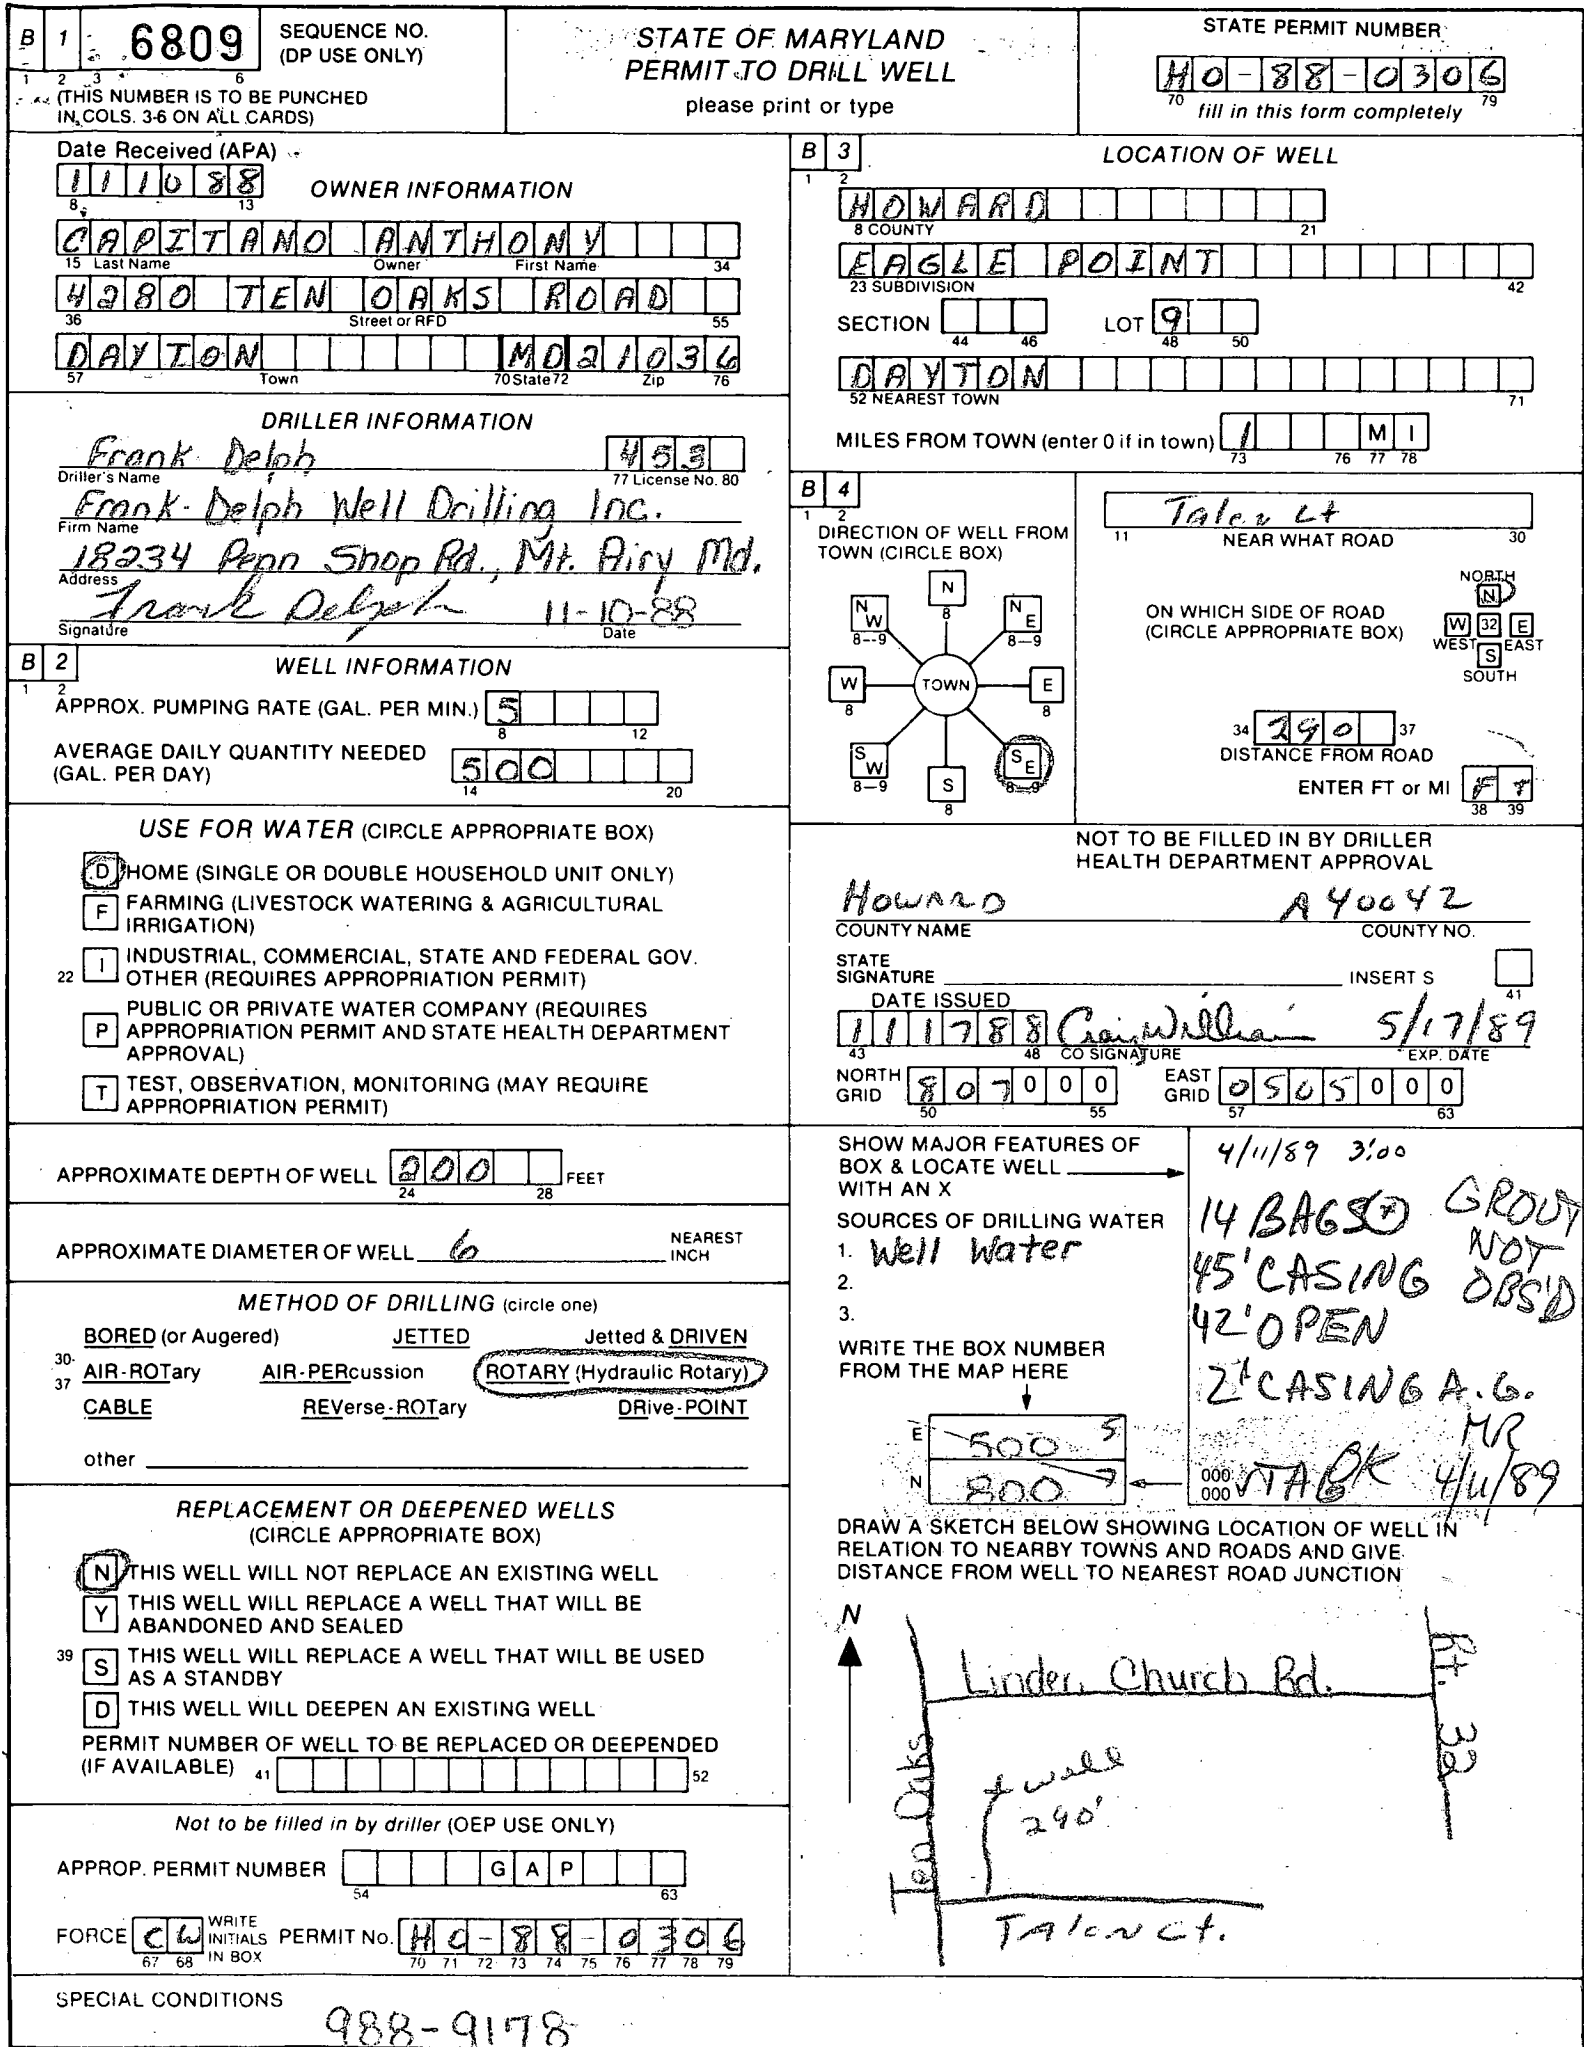 B 1 6809 SEQUENCE NO. (DP USE ONLY)
1 2 3 6
(THIS NUMBER IS TO BE PUNCHED
IN COLS. 3-6 ON ALL CARDS)
STATE OF MARYLAND
PERMIT TO DRILL WELL
please print or type
STATE PERMIT NUMBER
HO-88-0306
70 79
fill in this form completely
Date Received (APA)
111088
8 13
OWNER INFORMATION
CAPITANO ANTHONY
15 Last Name Owner First Name 34
4280 TEN OAKS ROAD
36 Street or RFD 55
DAYTON MD 21036
57 Town 70 State 72 Zip 76
DRILLER INFORMATION
Frank Delph 453
Driller's Name 77 License No. 80
Frank Delph Well Drilling Inc.
Firm Name
18234 Penn Shop Rd., Mt. Airy Md.
Address
Frank Delph 11-10-88
Signature Date
B 2 WELL INFORMATION
1 2
APPROX. PUMPING RATE (GAL. PER MIN.) 5
8 12
AVERAGE DAILY QUANTITY NEEDED
(GAL. PER DAY) 500
14 20
USE FOR WATER (CIRCLE APPROPRIATE BOX)
D HOME (SINGLE OR DOUBLE HOUSEHOLD UNIT ONLY)
F FARMING (LIVESTOCK WATERING & AGRICULTURAL
IRRIGATION)
22 I INDUSTRIAL, COMMERCIAL, STATE AND FEDERAL GOV.
OTHER (REQUIRES APPROPRIATION PERMIT)
P PUBLIC OR PRIVATE WATER COMPANY (REQUIRES
APPROPRIATION PERMIT AND STATE HEALTH DEPARTMENT
APPROVAL)
T TEST, OBSERVATION, MONITORING (MAY REQUIRE
APPROPRIATION PERMIT)
APPROXIMATE DEPTH OF WELL 200 FEET
24 28
APPROXIMATE DIAMETER OF WELL 6 NEAREST
INCH
METHOD OF DRILLING (circle one)
BORED (or Augered) JETTED Jetted & DRIVEN
30-
37
AIR-ROTary AIR-PERcussion ROTARY (Hydraulic Rotary)
CABLE REVerse-ROTary DRive-POINT
other
REPLACEMENT OR DEEPENED WELLS
(CIRCLE APPROPRIATE BOX)
N THIS WELL WILL NOT REPLACE AN EXISTING WELL
Y THIS WELL WILL REPLACE A WELL THAT WILL BE
ABANDONED AND SEALED
39 S THIS WELL WILL REPLACE A WELL THAT WILL BE USED
AS A STANDBY
D THIS WELL WILL DEEPEN AN EXISTING WELL
PERMIT NUMBER OF WELL TO BE REPLACED OR DEEPENDED
(IF AVAILABLE) 41 52
Not to be filled in by driller (OEP USE ONLY)
APPROP. PERMIT NUMBER G A P
54 63
FORCE CW WRITE INITIALS IN BOX PERMIT No. HO-88-0306
67 68 70 71 72 73 74 75 76 77 78 79
SPECIAL CONDITIONS
988-9178
B 3 LOCATION OF WELL
1 2
HOWARD
8 COUNTY 21
EAGLE POINT
23 SUBDIVISION 42
SECTION LOT 9
44 46 48 50
DAYTON
52 NEAREST TOWN 71
MILES FROM TOWN (enter 0 if in town) 1 M I
73 76 77 78
B 4
1 2
DIRECTION OF WELL FROM
TOWN (CIRCLE BOX)
N
8
NW NE
8--9 8--9
W TOWN E
8 8
SW SE
8--9 8--9
S
8
Talon Ct
11 NEAR WHAT ROAD 30
ON WHICH SIDE OF ROAD
(CIRCLE APPROPRIATE BOX)
NORTH
N
W 32 E
WEST EAST
S
SOUTH
34 290 37
DISTANCE FROM ROAD
ENTER FT or MI FT
38 39
NOT TO BE FILLED IN BY DRILLER
HEALTH DEPARTMENT APPROVAL
HOWARD A40042
COUNTY NAME COUNTY NO.
STATE
SIGNATURE INSERT S
41
DATE ISSUED
111788 Craig William 5/17/89
43 48 CO SIGNATURE EXP. DATE
NORTH GRID 807000 EAST GRID 0505000
50 55 57 63
SHOW MAJOR FEATURES OF
BOX & LOCATE WELL
WITH AN X
SOURCES OF DRILLING WATER
1. Well Water
2.
3.
WRITE THE BOX NUMBER
FROM THE MAP HERE
E 500 5
N 800 7
000
000
4/11/89 3:00
14 BAGS GROUT
NOT
OBS'D
45' CASING
42' OPEN
2' CASING A.G.
MR
TAG OK 4/11/89
DRAW A SKETCH BELOW SHOWING LOCATION OF WELL IN
RELATION TO NEARBY TOWNS AND ROADS AND GIVE
DISTANCE FROM WELL TO NEAREST ROAD JUNCTION
N
Linden Church Rd.
Rt. 32
Ten Oaks
+ well
290'
Talon Ct.